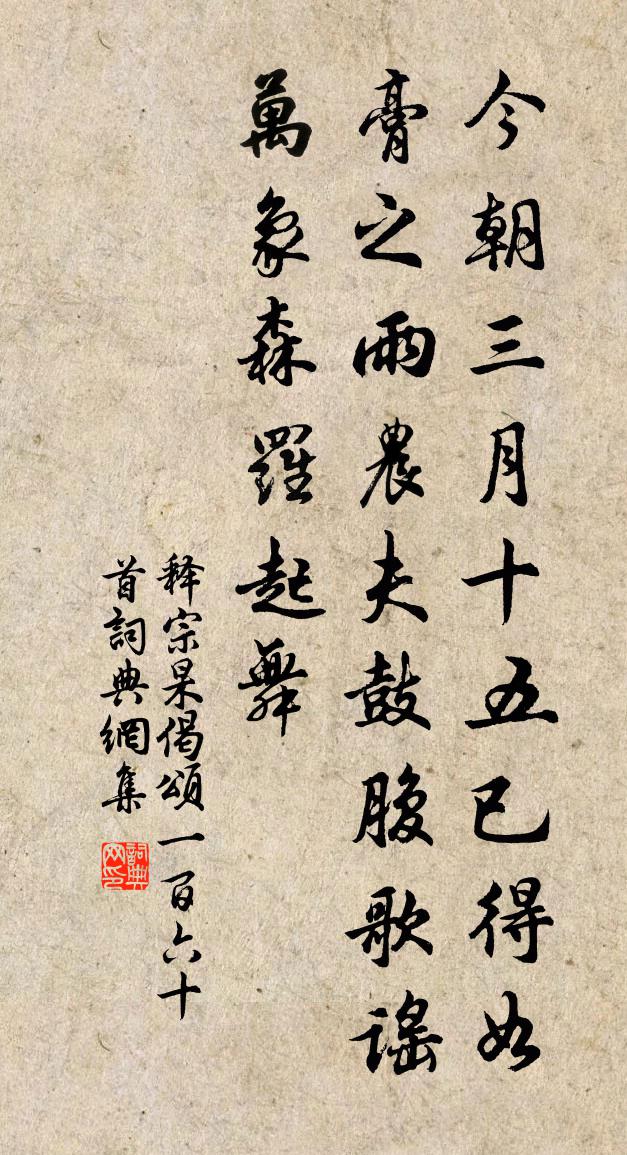 今朝三月十五已得如
膏之雨農夫鼓腹歌謡
萬象森羅起舞
释宗杲偈頌一百六十
首詞典網集
詞典
网印